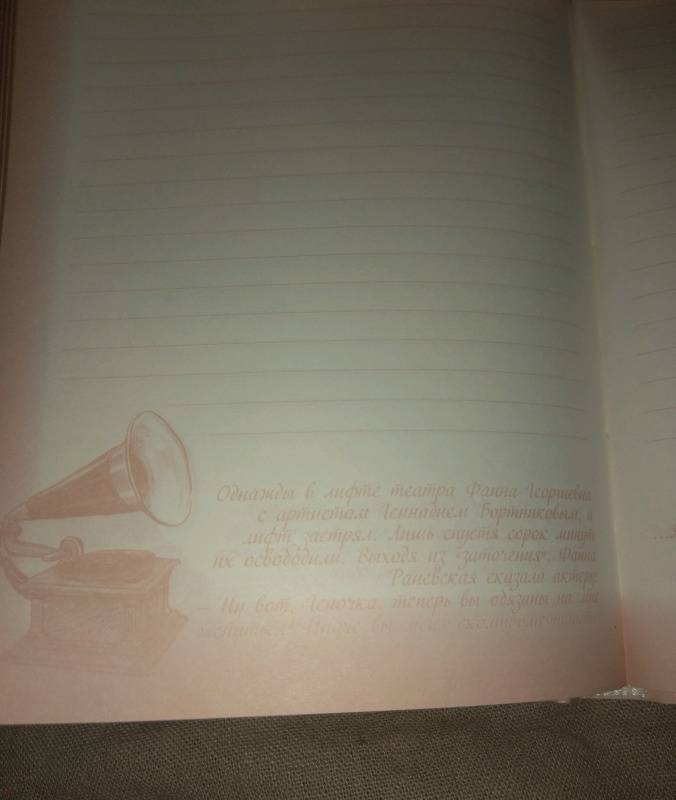 Однажды в лифте театра Фаина Георгиевна
с артистом Геннадием Бортниковым, и
лифт застрял. Лишь спустя сорок минут
их освободили. Выходя из "заточения", Фаина
Раневская сказала актеру:
Ну вот, Геночка, теперь вы обязаны на мне
Иначе вы меня